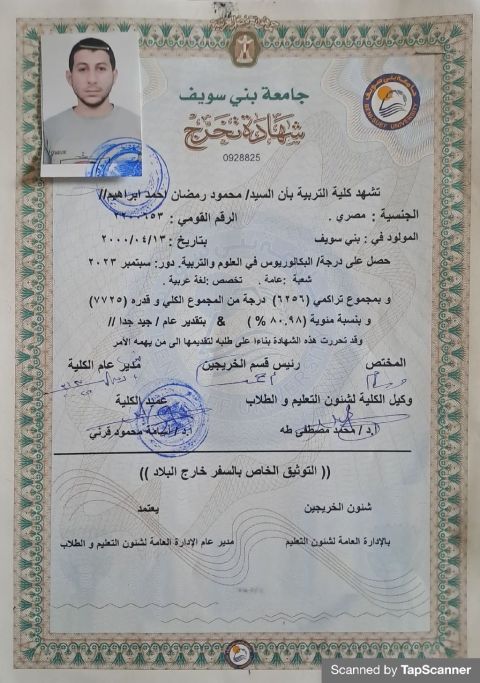 جامعة بني سويف
شهادة تخرج
0928825
تشهد كلية التربية بأن السيد/ محمود رمضان احمد ابراهيم//
الجنسية : مصري . الرقم القومي :
المولود في : بني سويف بتاريخ : ٢٠٠٠/٠٤/١٣
حصل على درجة/ البكالوريوس في العلوم والتربية. دور: سبتمبر ٢٠٢٣
شعبة :عامة . تخصص :لغة عربية .
و بمجموع تراكمي (٦٢٥٦) درجة من المجموع الكلي و قدره (٧٧٢٥)
و بنسبة مئوية (٨٠,٩٨ %) & بتقدير عام / جيد جدا //
وقد تحررت هذه الشهادة بناءا على طلبه لتقديمها الى من يهمه الأمر
المختص رئيس قسم الخريجين مدير عام الكلية
وكيل الكلية لشئون التعليم و الطلاب عميد الكلية
أ.د / محمد مصطفى طه أ.د / أسامة محمود قرني
(( التوثيق الخاص بالسفر خارج البلاد ))
شئون الخريجين يعتمد
بالإدارة العامة لشئون التعليم مدير عام الإدارة العامة لشئون التعليم و الطلاب
Scanned by TapScanner